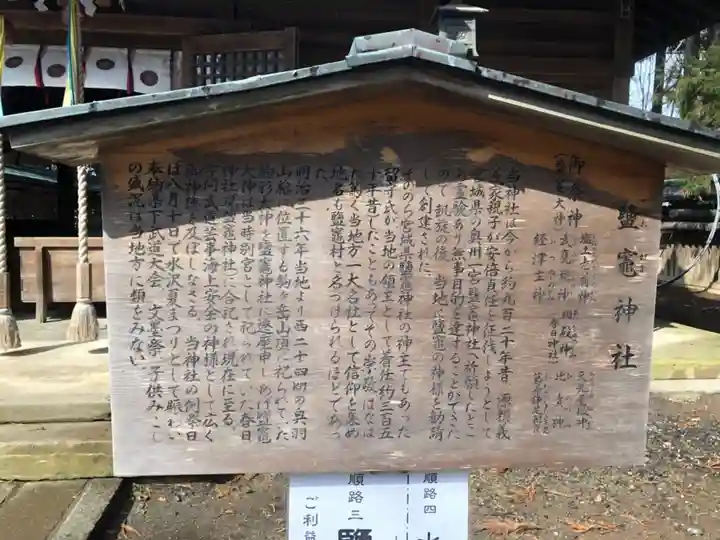 鹽竈神社
御祭神
経津主神
春日神社
当神社は今から約九百二十年昔 源頼義
義家親子が安倍貞任を征伐しようとして
宮城県の奥州一宮鹽竈神社へ祈願したとこ
ろ霊験あり無事目的を達することができた
ので凱旋の後、当地に鹽竈の神様を勧請
して創建された
そののち宮城県鹽竈神社の神主でもあった
留守氏が当地の領主として着任約三百五
十年昔したこともあってその崇敬はなは
だ篤く当地方の大名社として信仰を集め
地名も鹽竈村と名づけられるほどであっ
た
明治三十六年当地より西二十四粁の奥羽
山〇に位置する駒ヶ岳山頂に祀られていた
駒形大神を鹽竈神社に遷座申しあげ鹽竈
大神は当時別宮として祀られていた春日
神社へ鹽竈神社に合祀され現在に至る
学問武道芸事海上安全の神様として広く
御神徳を及ぼしなさる 当神社の例祭日
は八月十日で水沢夏まつりとして賑わい
奉納県下武道大会 文墨祭 子供みこし
の盛況は当地方に類をみない
順路三
ご利益
順路四